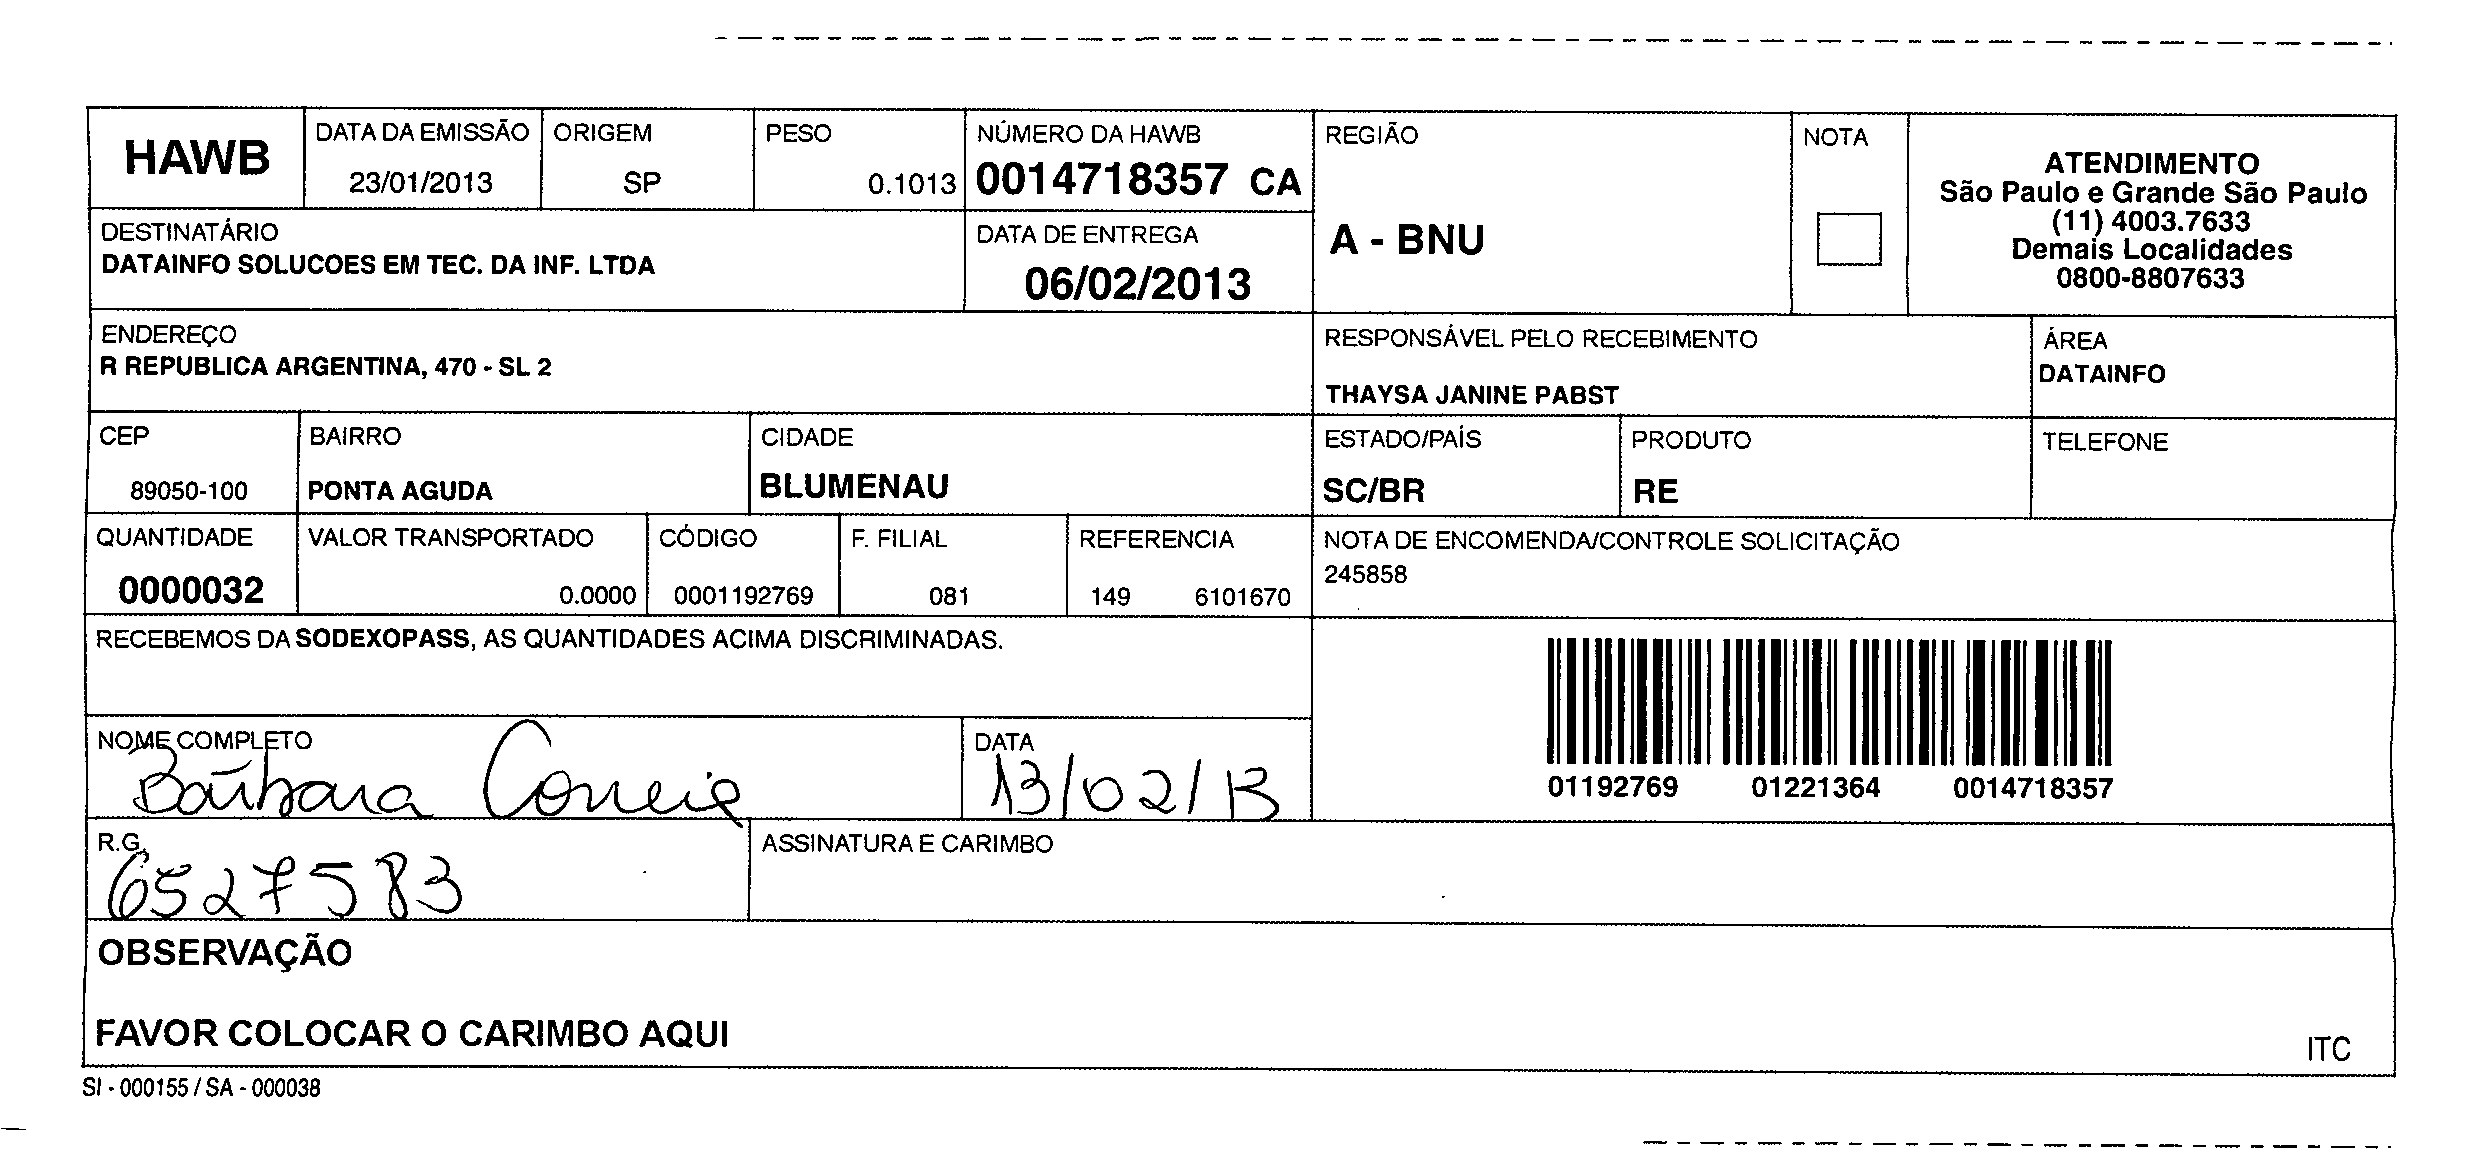 HAWB
DATA DA EMISSÃO
23/01/2013
ORIGEM
SP
PESO
0.1013
NÚMERO DA HAWB
0014718357 CA
REGIÃO
A - BNU
NOTA
ATENDIMENTO
São Paulo e Grande São Paulo
(11) 4003.7633
Demais Localidades
0800-8807633
DESTINATÁRIO
DATAINFO SOLUCOES EM TEC. DA INF. LTDA
DATA DE ENTREGA
06/02/2013
ENDEREÇO
R REPUBLICA ARGENTINA, 470 - SL 2
RESPONSÁVEL PELO RECEBIMENTO
THAYSA JANINE PABST
ÁREA
DATAINFO
CEP
89050-100
BAIRRO
PONTA AGUDA
CIDADE
BLUMENAU
ESTADO/PAÍS
SC/BR
PRODUTO
RE
TELEFONE
QUANTIDADE
0000032
VALOR TRANSPORTADO
0.0000
CÓDIGO
0001192769
F. FILIAL
081
REFERENCIA
149 6101670
NOTA DE ENCOMENDA/CONTROLE SOLICITAÇÃO
245858
RECEBEMOS DA SODEXOPASS, AS QUANTIDADES ACIMA DISCRIMINADAS.
01192769 01221364 0014718357
NOME COMPLETO
Bárbara Correia
DATA
13/02/13
R.G.
6527583
ASSINATURA E CARIMBO
OBSERVAÇÃO
FAVOR COLOCAR O CARIMBO AQUI
ITC
SI - 000155 / SA - 000038